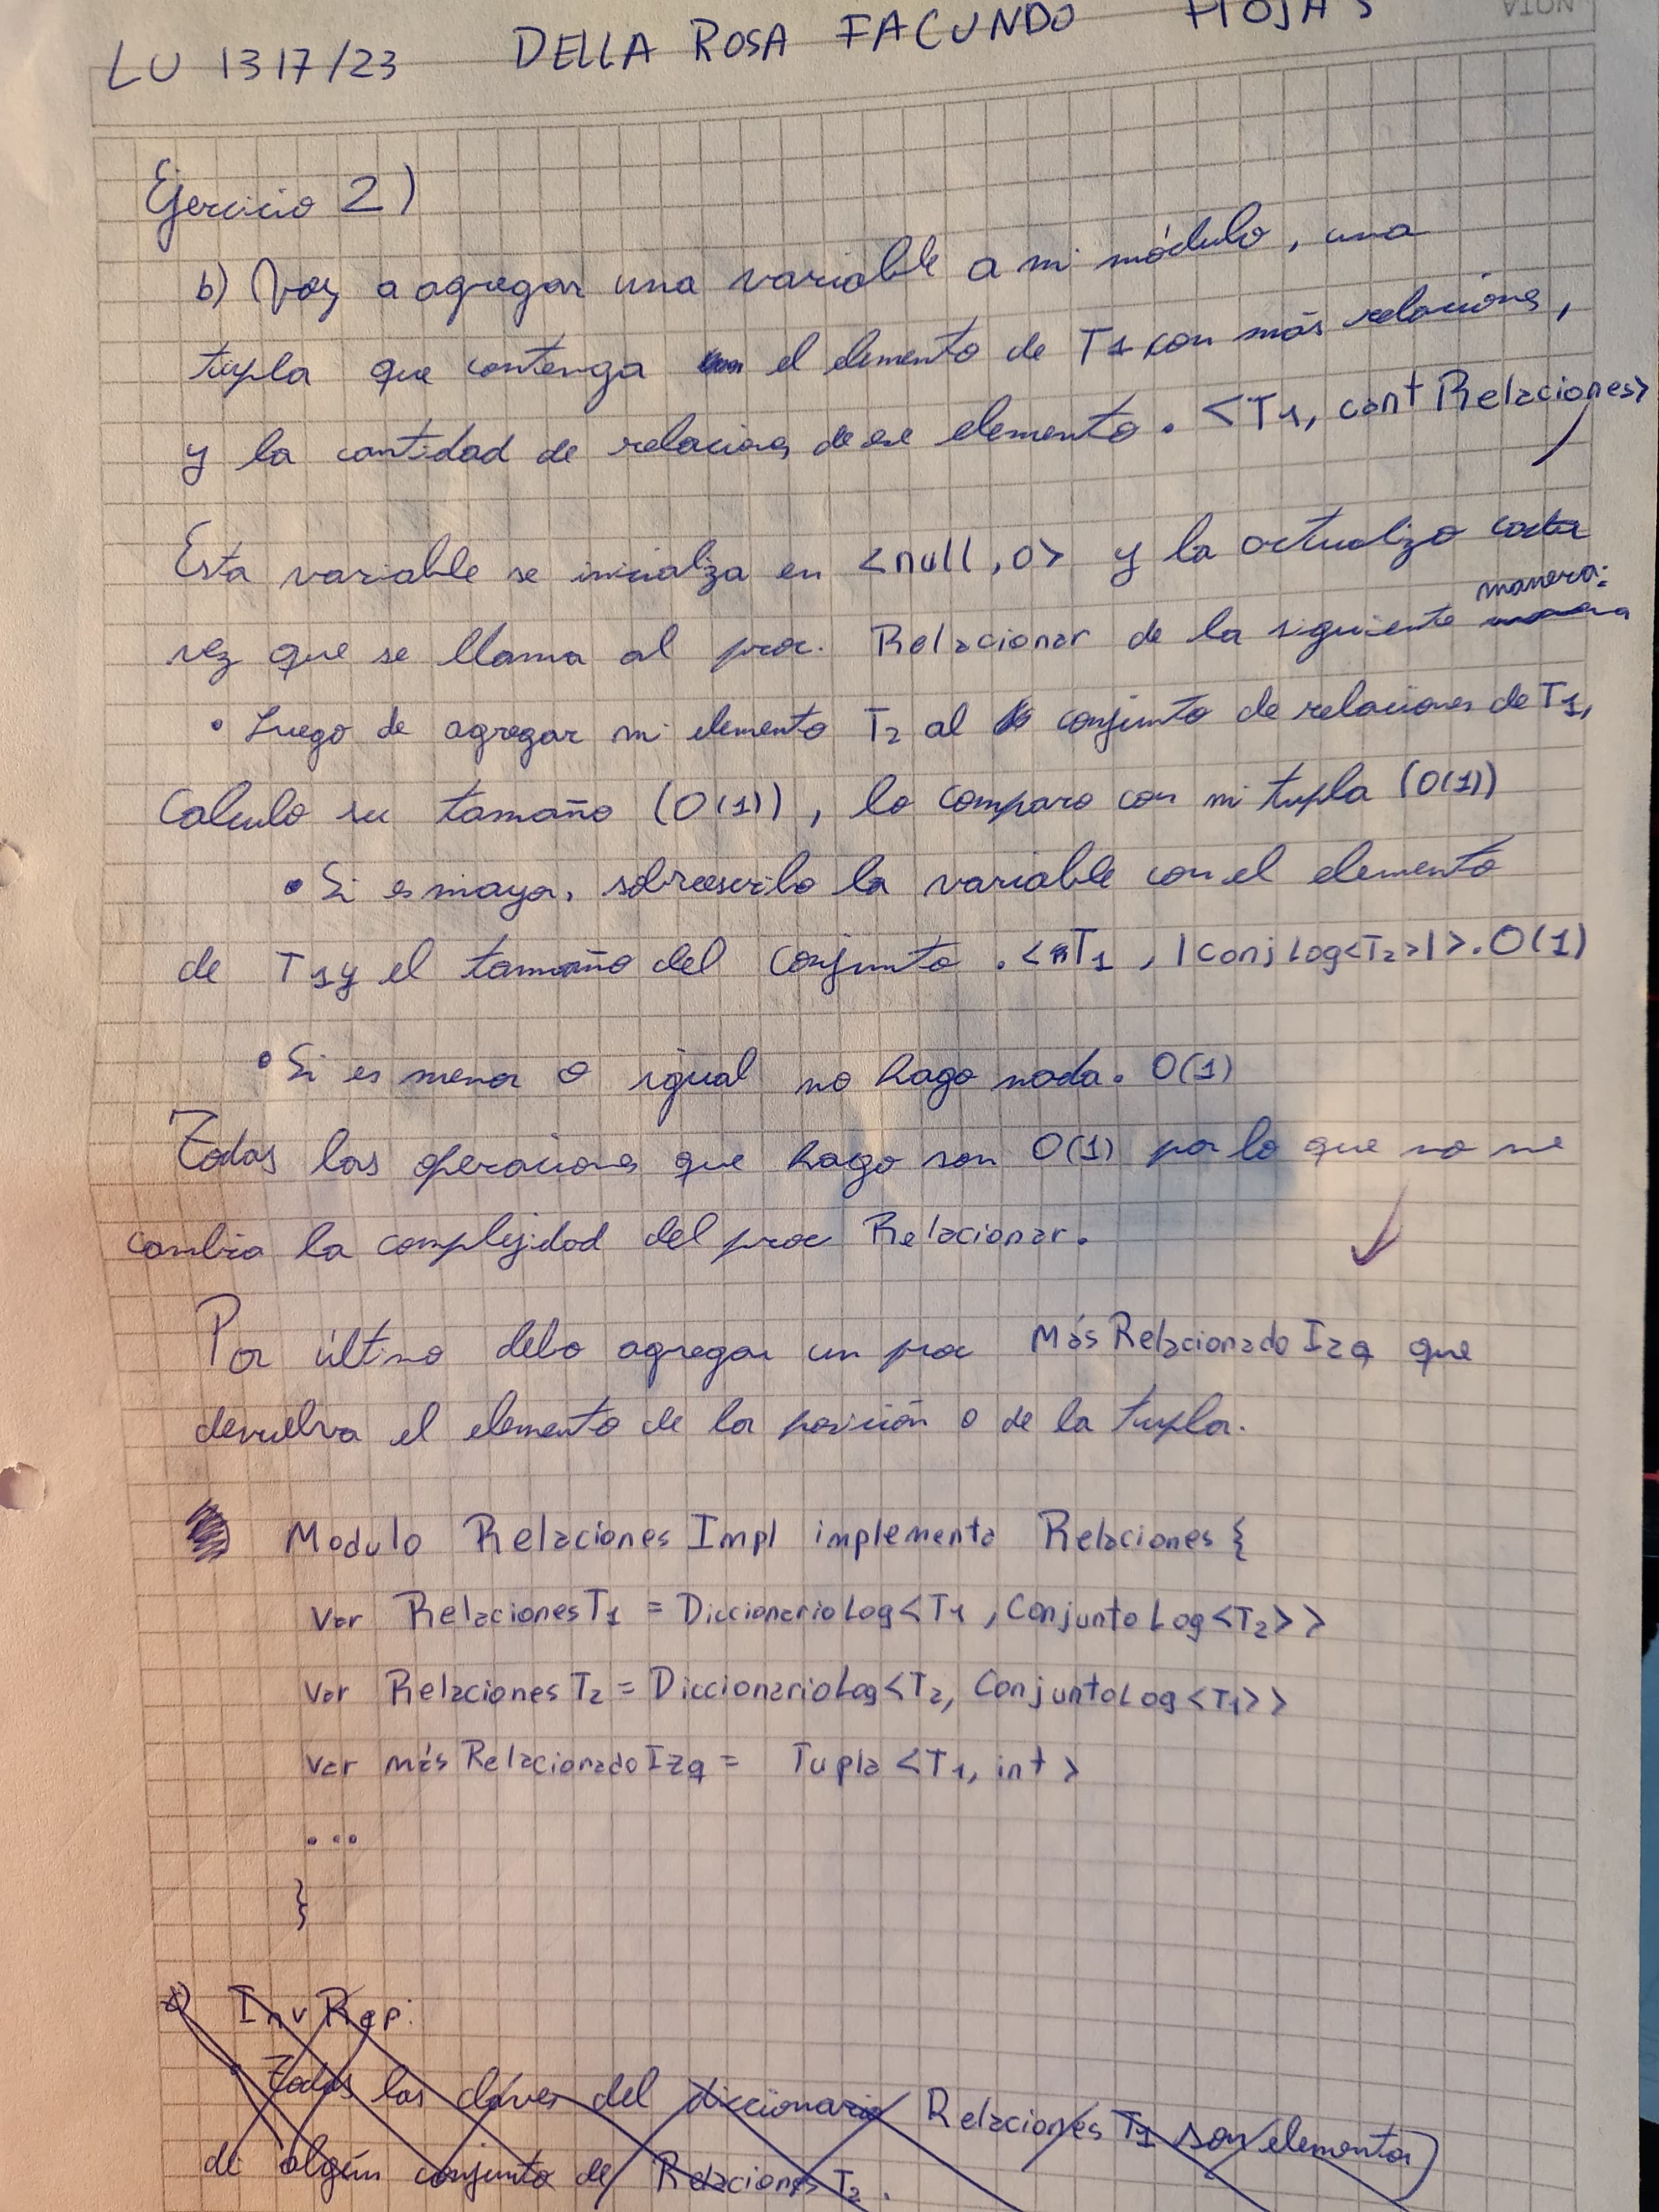 LU 1317/23 DELLA ROSA FACUNDO HOJA 3
NOTA
Ejercicio 2)
b) Voy a agregar una variable a mi módulo, una
tupla que contenga el elemento de T1 con más relaciones,
y la cantidad de relaciones de ese elemento. <T1, cant Relaciones>
Esta variable se inicializa en <null, 0> y la actualizo cada
vez que se llama al proc. Relacionar de la siguiente manera:
• Luego de agregar mi elemento T2 al conjunto de relaciones de T1,
Calculo su tamaño (O(1)), lo comparo con mi tupla (O(1))
• Si es mayor, sobreescribo la variable con el elemento
de T1 y el tamaño del conjunto. <T1, |conjLog<T2>|>. O(1)
• Si es menor o igual no hago nada. O(1)
Todas las operaciones que hago son O(1) por lo que no me
cambia la complejidad del proc Relacionar.
Por último debo agregar un proc Más Relacionado Izq que
devuelva el elemento de la posición 0 de la tupla.
Modulo Relaciones Impl implementa Relaciones {
Var RelacionesT1 = DiccionarioLog<T1, ConjuntoLog<T2>>
Var Relaciones T2 = DiccionarioLog<T2, ConjuntoLog<T1>>
Var más Relacionado Izq = Tupla <T1, int>
...
}
Inv Rep:
• Todas las claves del diccionario Relaciones T1 son elementos
de algún conjunto de Relaciones T2.